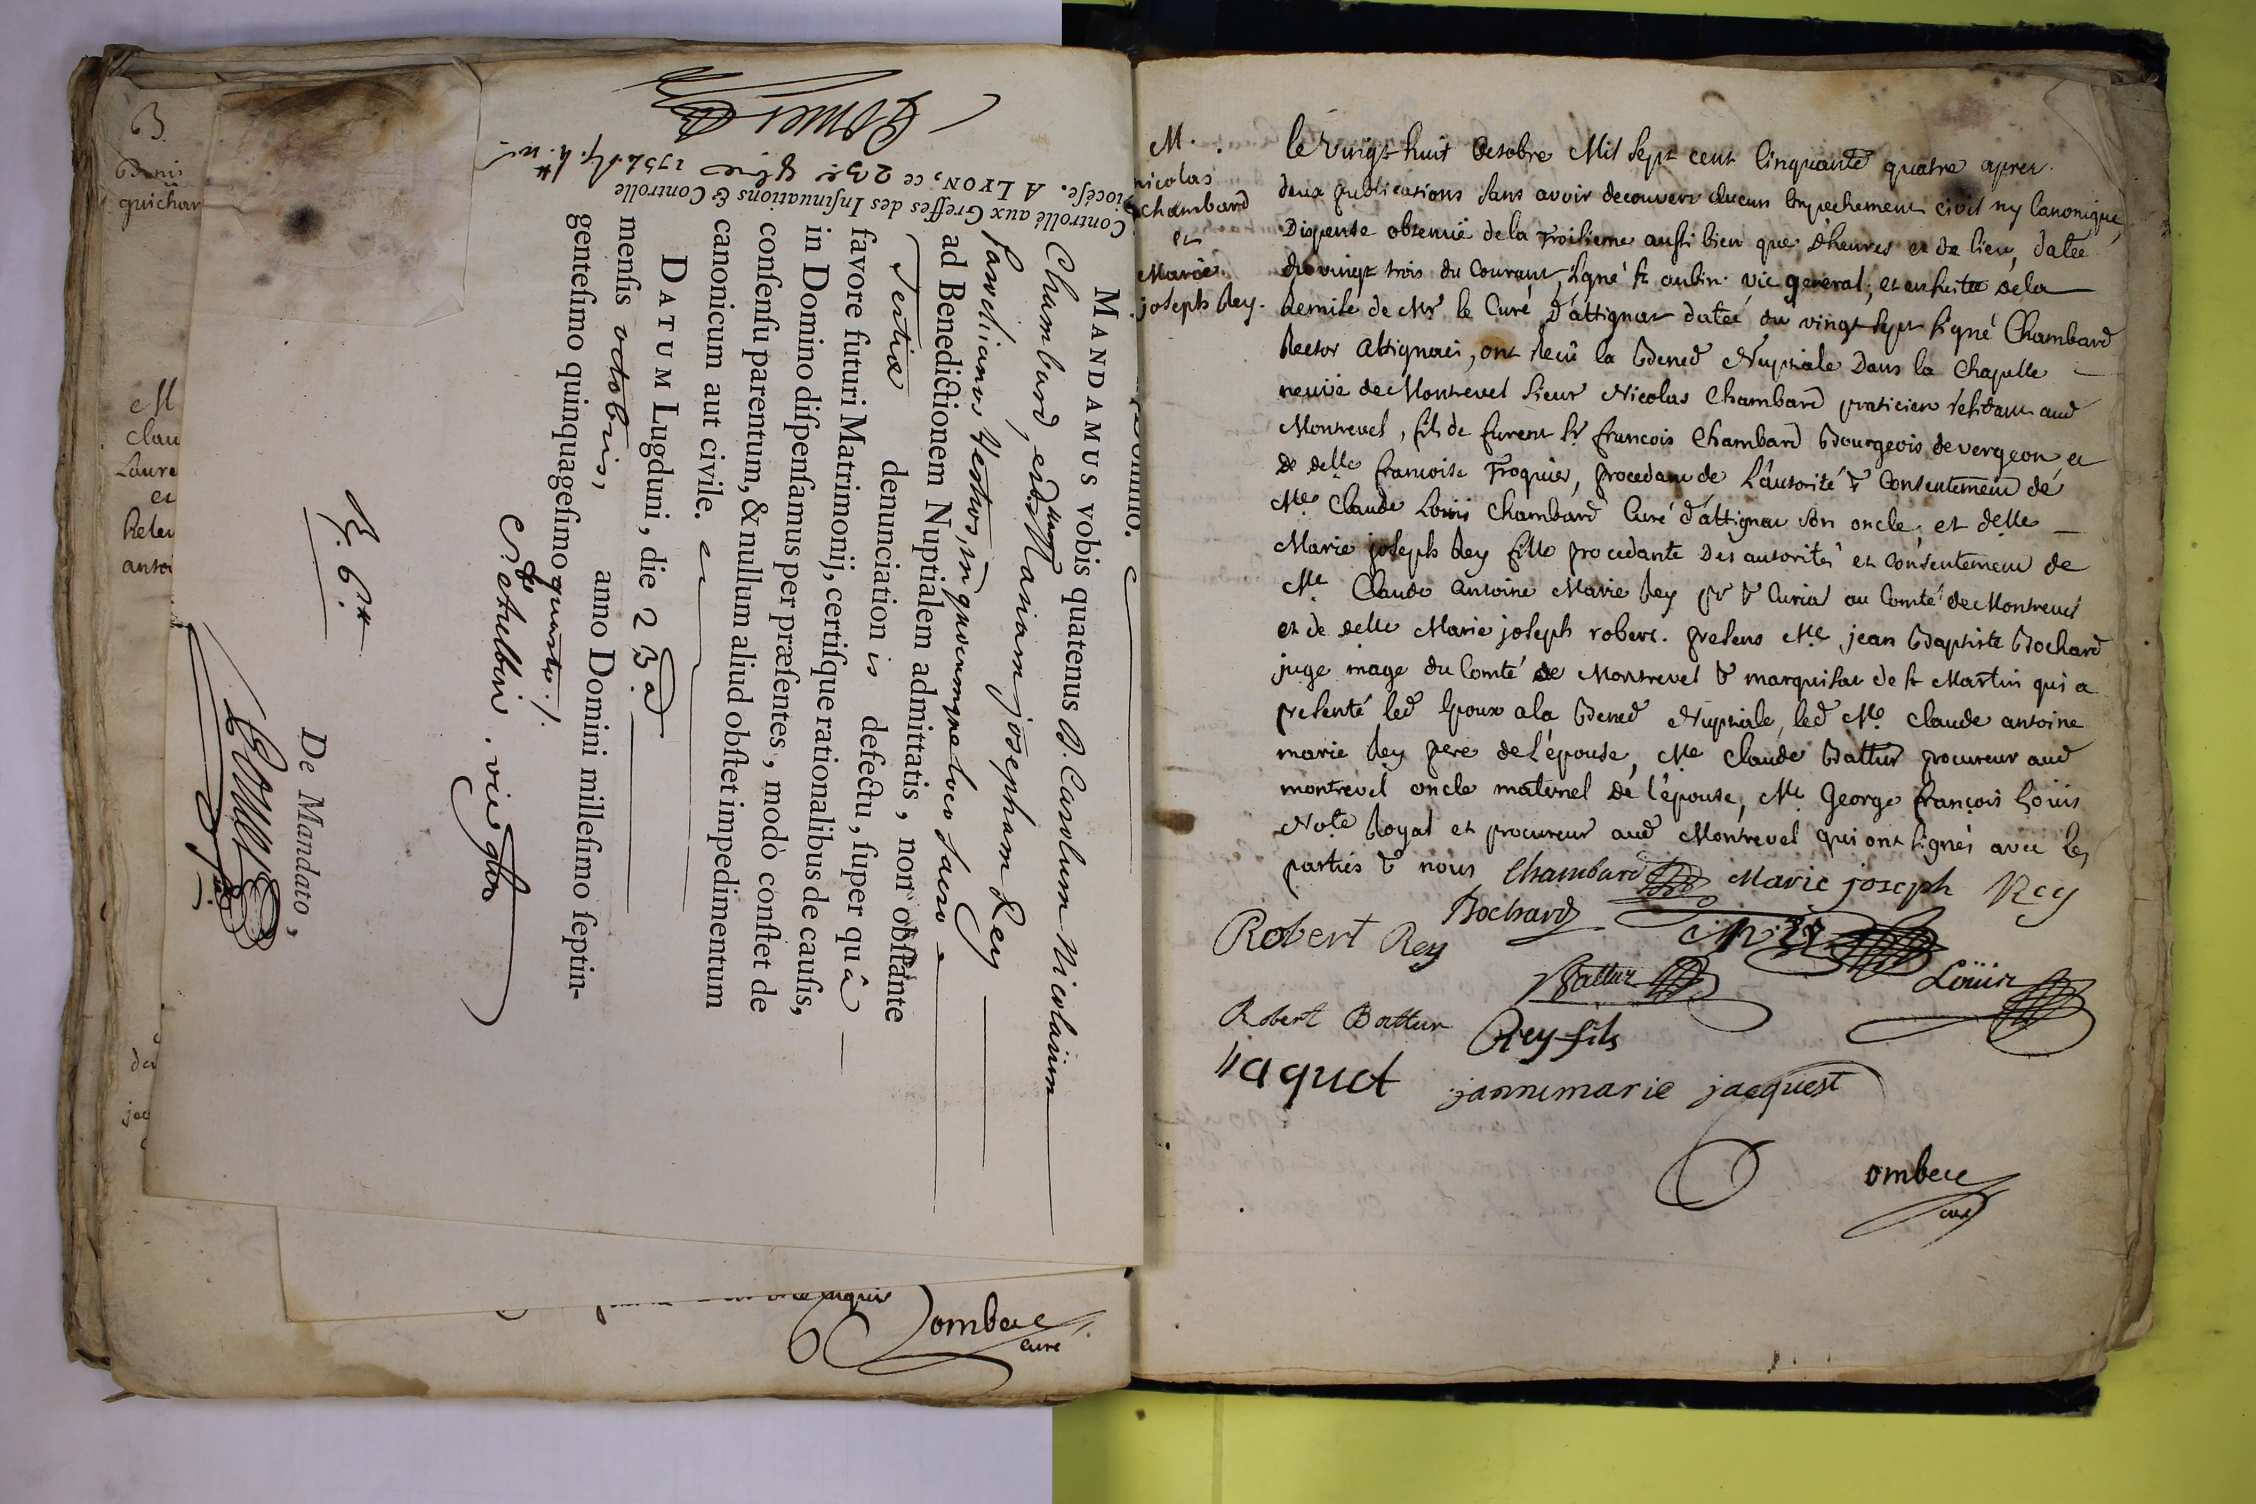 MANDAMUS vobis quatenus D. Carolum Nicolaum
Chambard, et Dam Mariam josepham Rey
Parochianos Vestros, in quocumque loco sacro
ad Benedictionem Nuptialem admittatis, non obstante
Tertiæ denunciationis defectu, super quâ
favore futuri Matrimonij, certisque rationalibus de causis,
in Domino dispensamus per præsentes, modò constet de
consensu parentum, & nullum aliud obstet impedimentum
canonicum aut civile.
DATUM Lugduni, die 23a
mensis octobris, anno Domini millesimo septin-
gentesimo quinquagesimo quarto ./.
St Aubin . vic glis
De Mandato,
Controllé aux Greffes des Insinuations & Controlle
Diocèse. A LYON, ce 23e 8bre 1754
B.
Denis
guichar
M
clau
Laure
et
helen
antoi
Dombere
curé
M.
nicolas
chambard
et
Marie
joseph Rey.
le vingt huit Octobre Mil Sept cent Cinquante quatre apres
deux publications sans avoir decouvert aucun Empechement civil ny Canonique,
Dispense obtenüe de la Troisieme aussi bien que d'heures et de lieu, datée
du vingt trois du Courant, signé st aubin vic general, et ensuite de la
Remise de Mr le Curé d'attignat datée du vingt sept signé Chambard
Rector Attignaci, ont Reçû la Bened Nuptiale Dans la Chapelle
neuve de Montrevel Sieur Nicolas Chambard praticien residant aud
Montrevel, fils de furent Sr françois Chambard Bourgeois de vergeon, et
de delle françoise Troquier, procedant de L'autorité & Consentement de
Me Claude Louis Chambard Curé d'attignat son oncle, et delle
Marie joseph Rey fille procedante Des autorités et Consentement de
Me Claude Antoine Marie Rey pr & Curial au Comté de Montrevel
et de delle Marie joseph robert. presens Me jean Baptiste Bochard
juge mage du Comté de Montrevel & marquisat de st Martin qui a
presenté led Epoux a la Bened Nuptiale, led Me claude antoine
marie Rey pere de l'épouse, Me claude Battur procureur aud
montrevel oncle maternel de l'épouse, Me George françois Louis
Note Royal et procureur aud Montrevel qui ont signés avec les
parties & nous Chambard Marie joseph Rey
Bochard
Robert Rey
Battur
Loüis
Robert Battur
Rey fils
jaquet
jannemarie jacquest
Dombere
curé